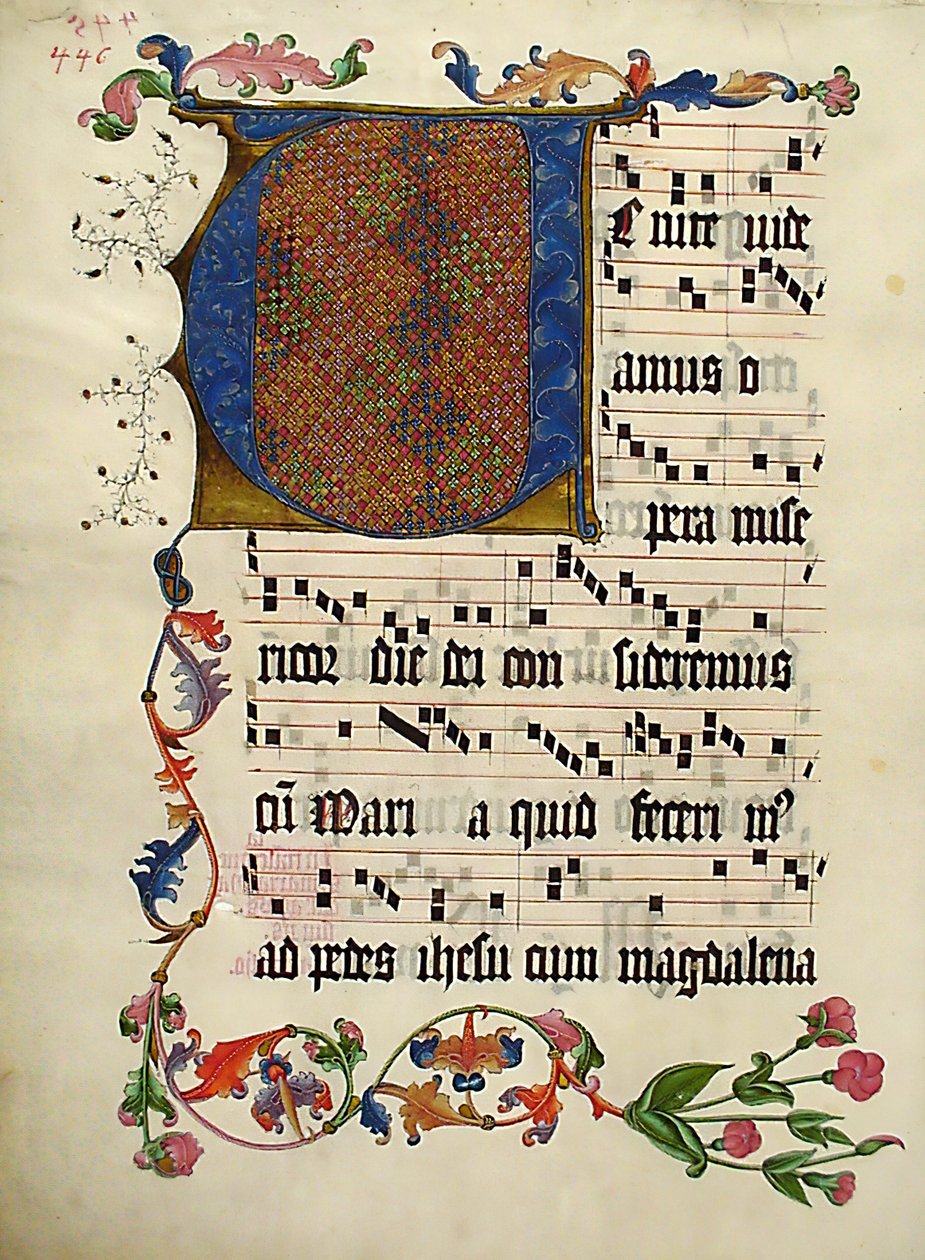 446
V Enite uide
amus o
pera mise
ricor die dei con sideremus
cū Mari a quid feceri mꝰ
ad pedes ihesu cum magdalena